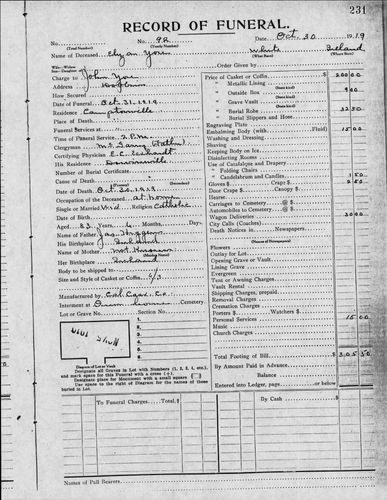 231
RECORD OF FUNERAL.
No. No. 92 Date Oct. 30 1919
(Total Number) (Yearly Number)
Name of Deceased White Ireland
(What Race) (Where Born)
Charge to John Order Given by
Address
How Secured
Date of Funeral Oct. 31. 1919.
Residence Camptonville
Place of Death
Funeral Services at
Time of Funeral Service 2 P.M.
Clergyman
Certifying Physician E. C.
His Residence
Number of Burial Certificate
Cause of Death
(Primary) (Secondary)
Date of Death Oct. 30. 1919
Occupation of the Deceased at home
Single or Married Wid Religion Catholic
Date of Birth
Aged 83 Years, Months, Days
Name of Father Jas.
His Birthplace Ireland
Name of Mother not Known
(Maiden Name)
Her Birthplace Ireland
Body to be shipped to
Size and Style of Casket or Coffin 6/3
Manufactured by Cal. Cas. Co.
Interment at Cemetery.
Lot or Grave No. Section No.
1.
2.
3.
4.
5.
6.
7.
8.
Diagram of Lot or Vault
Designate all Graves in Lot with Numbers (1, 2, 3, 4, etc.),
and mark space for this Funeral with a cross (+).
Designate place for Monument with a small square
Use space to right of Diagram for the names of those
buried in Lot.
Price of Casket or Coffin 200 00
" Metallic Lining
" Outside Box 9 00
" Grave Vault
" Burial Robe 32 50
" Burial Slippers and Hose
Engraving Plate
Embalming Body (with Fluid) 15 00
Washing and Dressing
Shaving
Keeping Body on Ice
Disinfecting Rooms
Use of Catafalque and Drapery
" Folding Chairs
" Candelabrum and Candles 1 50
Gloves $ Crape $ 2 50
Door Crape Canopy $
Hearse
Carriages to Cemetery @ $
Automobiles to Cemetery @ $
Wagon Deliveries 30 00
City Calls (Coaches)
Death Notices in Newspapers
(Names of Newspapers)
Flowers
Outlay for Lot
Opening Grave or Vault
Lining Grave
Evergreen
Tent or Awning Charges
Vault Rental
Shipping Charges, prepaid
Removal Charges
Cremation Charges
Porters $ Watchers $
Personal Services 15 00
Music
Church Charges
Total Footing of Bill 305 50
By Amount Paid in Advance
Balance
Entered into Ledger, page or below
To Funeral Charges, Total $
By Cash $
Names of Pall Bearers